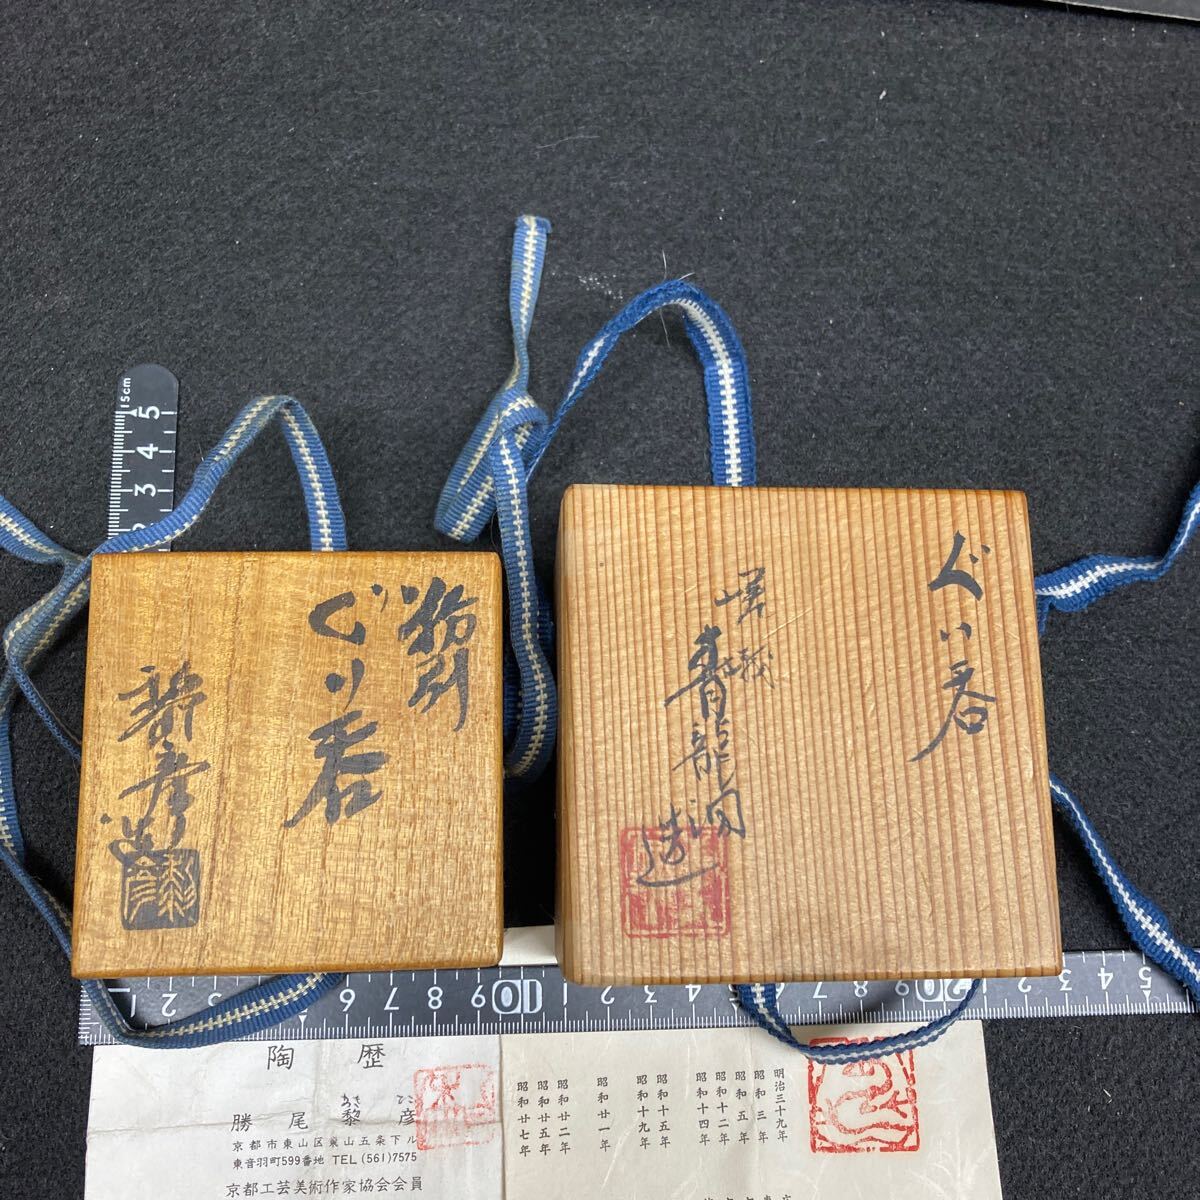 粉引
ぐい呑
黎彦造
黎彦
ぐい呑
嵯峨
青龍洞
造
15cm
5
4
3
2
1 2 6 7 8 9 10 1 2 3 4 7 8 9 20 1 2 3 4 5
陶歴
あき ひこ
勝尾 黎彦
京都市東山区東山五条下ル
東音羽町599番地 TEL (561) 7575
京都工芸美術作家協会会員
明治三十九年
昭和三年
昭和五年
昭和十二年
昭和十四年
昭和十五年
昭和十九年
昭和廿一年
昭和廿二年
昭和廿五年
昭和廿七年